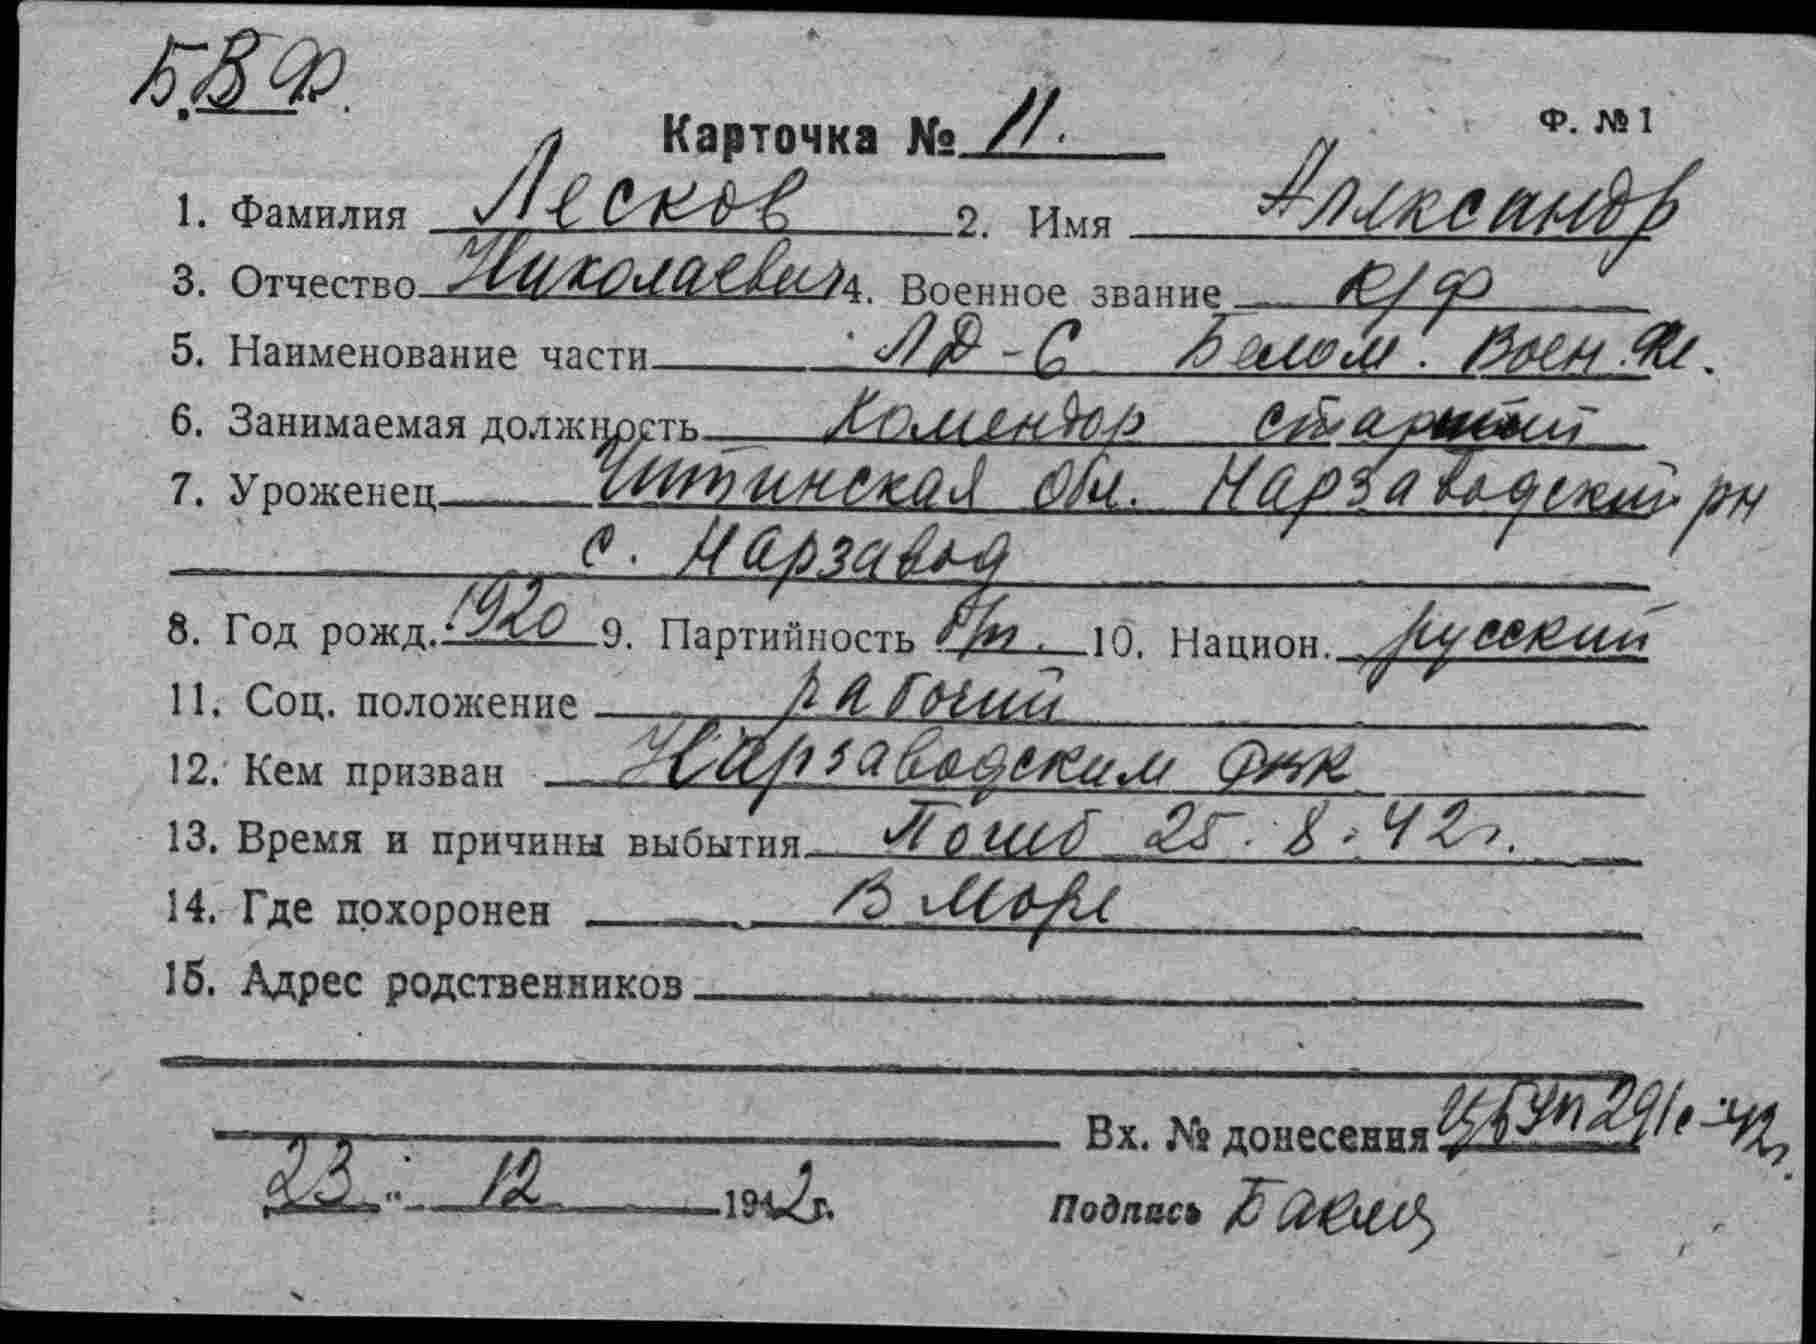 Б.В.Ф.
Карточка № 11. Ф. № 1
1. Фамилия Лесков 2. Имя Александр
3. Отчество Николаевич 4. Военное звание к/ф
5. Наименование части ЛД-6 Белом. Воен. Фл.
6. Занимаемая должность Комендор старший
7. Уроженец Читинская обл. Нарзаводский рн
с. Нарзавод
8. Год рожд. 1920 9. Партийность б/п. 10. Национ. русский
11. Соц. положение рабочий
12. Кем призван Нарзаводским
13. Время и причины выбытия Погиб 25.8.42г.
14. Где похоронен В море
15. Адрес родственников
Вх. № донесения
23 " 12 1942г. Подпись